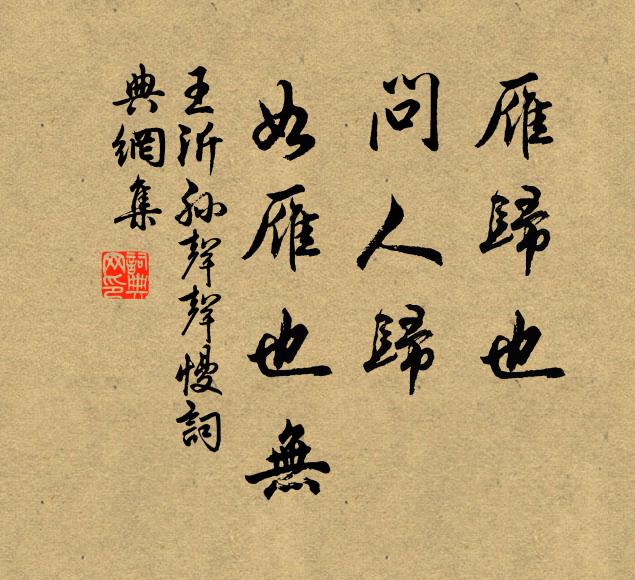 雁歸也
問人歸
如雁也無
王沂孫聲聲慢詞
典網集
詞典网印